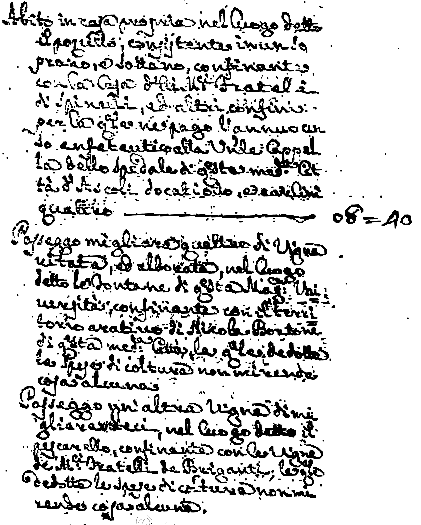 Abito in casa propria nel luogo detto
il pozzillo, consistente in un so
prano, e sottano, confinante
con la Casa delli M.ci Fratelli
di Spinelli, ed altri confini
per la q.le ne pago l'annuo cen
so enfiteutico alla V.ble Cappel
la dello spedale di q.sta med.ma Cit
tà d'Ascoli docati otto, e carlini
quattro 08=40
Posseggo migliara quattro di Vigna
vitata, ed alborata, nel luogo
detto le Fontane di q.sta Mag.ca Uni
versità, confinante con il terri
torio aratino di Nicola Bontom
di q.sta med.ma Città, la q.le dedotte
le spese di coltura non mi rende
cosa alcuna.
Posseggo un'altra Vigna di mi
gliara dieci, nel luogo detto il
pescarello, confinante con le Vigne
de M.ci Fratelli de Briganti, la q.le
dedotte le spese di coltura non mi
rende cosa alcuna.